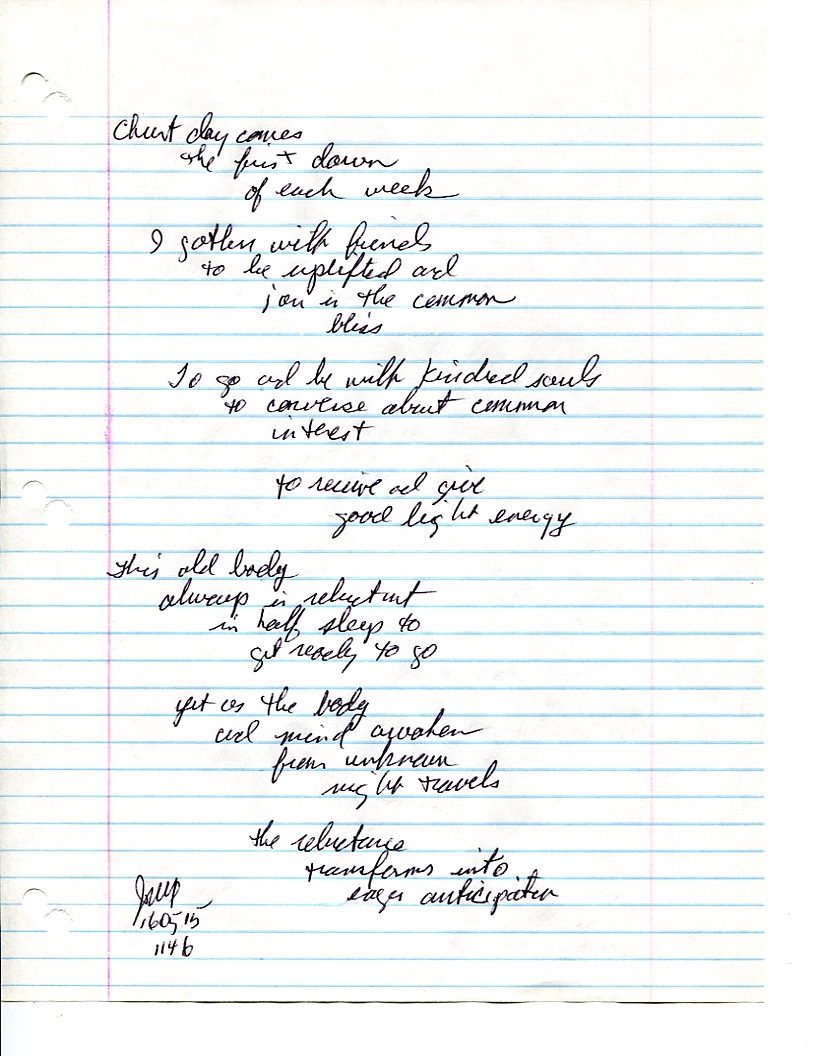 Church day comes
the first dawn
of each week
I gather with friends
to be uplifted and
join in the common
bliss
To go and be with kindred souls
to converse about common
interest
to receive and give
good light energy
This old body
always is reluctant
in half sleep to
get ready to go
yet as the body
and mind awaken
from unknown
night travels
the reluctance
transforms into
eager anticipation
160515
1146